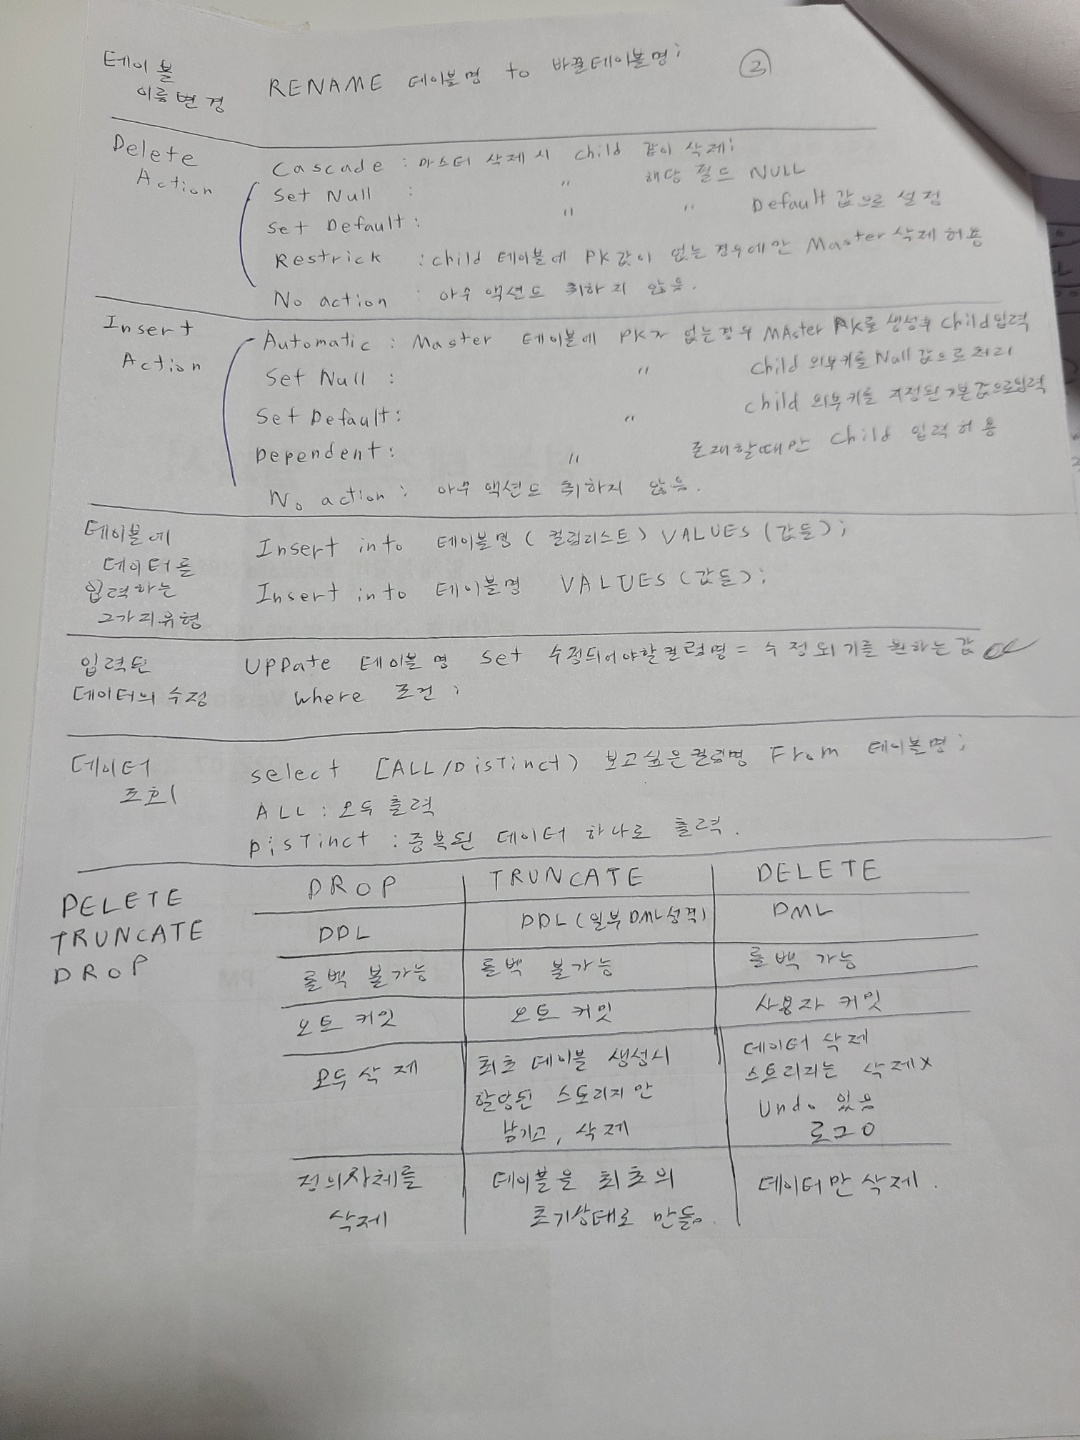 테이블 이름변경 RENAME 테이블명 to 바꿀테이블명; ②
Delete Action
Cascade : 마스터 삭제시 child 같이 삭제;
Set Null : " 해당 필드 NULL
Set Default : " " Default 값으로 설정
Restrick : child 테이블에 PK값이 없는 경우에만 Master 삭제 허용
No action : 아무 액션도 취하지 않음.
Insert Action
Automatic : Master 테이블에 PK가 없는경우 MAster PK를 생성후 Child입력
Set Null : " Child 외부키를 Null 값으로 처리
Set Default : " Child 외부키를 지정된 기본값으로입력
Dependent : " 존재할때만 Child 입력 허용
No action : 아무 액션도 취하지 않음.
테이블에 데이터를 입력하는 2가지유형
Insert into 테이블명 (컬럼리스트) VALUES (값들);
Insert into 테이블명 VALUES (값들);
입력된 데이터의 수정
UPDate 테이블 명 set 수정되어야할컬럼명 = 수정되기를 원하는 값
where 조건;
데이터 조회
select [ALL/DisTinct) 보고싶은컬럼명 From 테이블명;
ALL : 모두 출력
DisTinct : 중복된 데이터 하나로 출력.
DELETE TRUNCATE DROP
DROP TRUNCATE DELETE
DDL DDL (일부 DML성격) DML
롤백 불가능 롤백 불가능 롤백 가능
오토 커밋 오토 커밋 사용자 커밋
모두 삭제 최초 테이블 생성시 데이터 삭제
할당된 스토리지만 스토리지는 삭제x
남기고, 삭제 Undo 있음
로그O
정의자체를 테이블을 최초의 데이터만 삭제.
삭제 초기상태로 만듦.